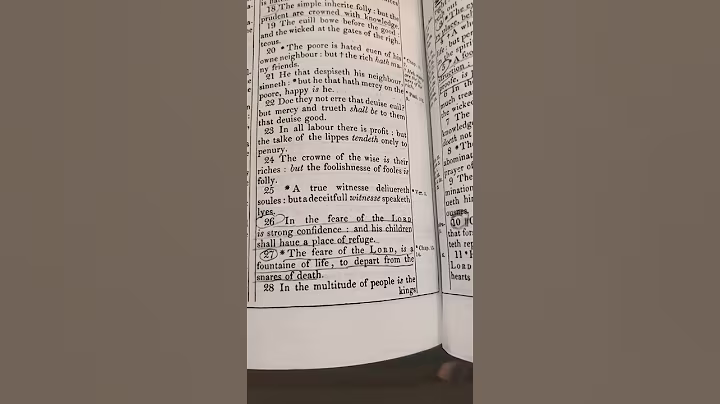 18 The simple inherite folly : but the
prudent are crowned with knowledge.
19 The euill bowe before the good :
and the wicked at the gates of the righ-
teous.
20 * The poore is hated euen of his
owne neighbour : but † the rich hath ma-
ny friends.
21 He that despiseth his neighbour,
sinneth : * but he that hath mercy on the
poore, happy is he.
22 Doe they not erre that deuise euill?
but mercy and trueth shall be to them
that deuise good.
23 In all labour there is profit : but
the talke of the lippes tendeth onely to
penury.
24 The crowne of the wise is their
riches : but the foolishnesse of fooles is
folly.
25 * A true witnesse deliuereth
soules : but a deceitfull witnesse speaketh
lyes.
26 In the feare of the LORD
is strong confidence : and his children
shall haue a place of refuge.
27 * The feare of the LORD, is a
fountaine of life, to depart from the
snares of death.
28 In the multitude of people is the
kings
* Chap. 13.
14.
5 A foo
6 In the
much trea
the wicked
7 The
knowledge
doeth not
8 * The
abominat
prayer of
9 The
mination
oeth him
10
that for
teth rep
11 *
LORD
hearts